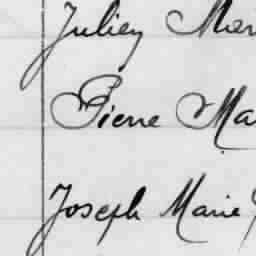 Julien Mar
Pierre Ma
Joseph Marie